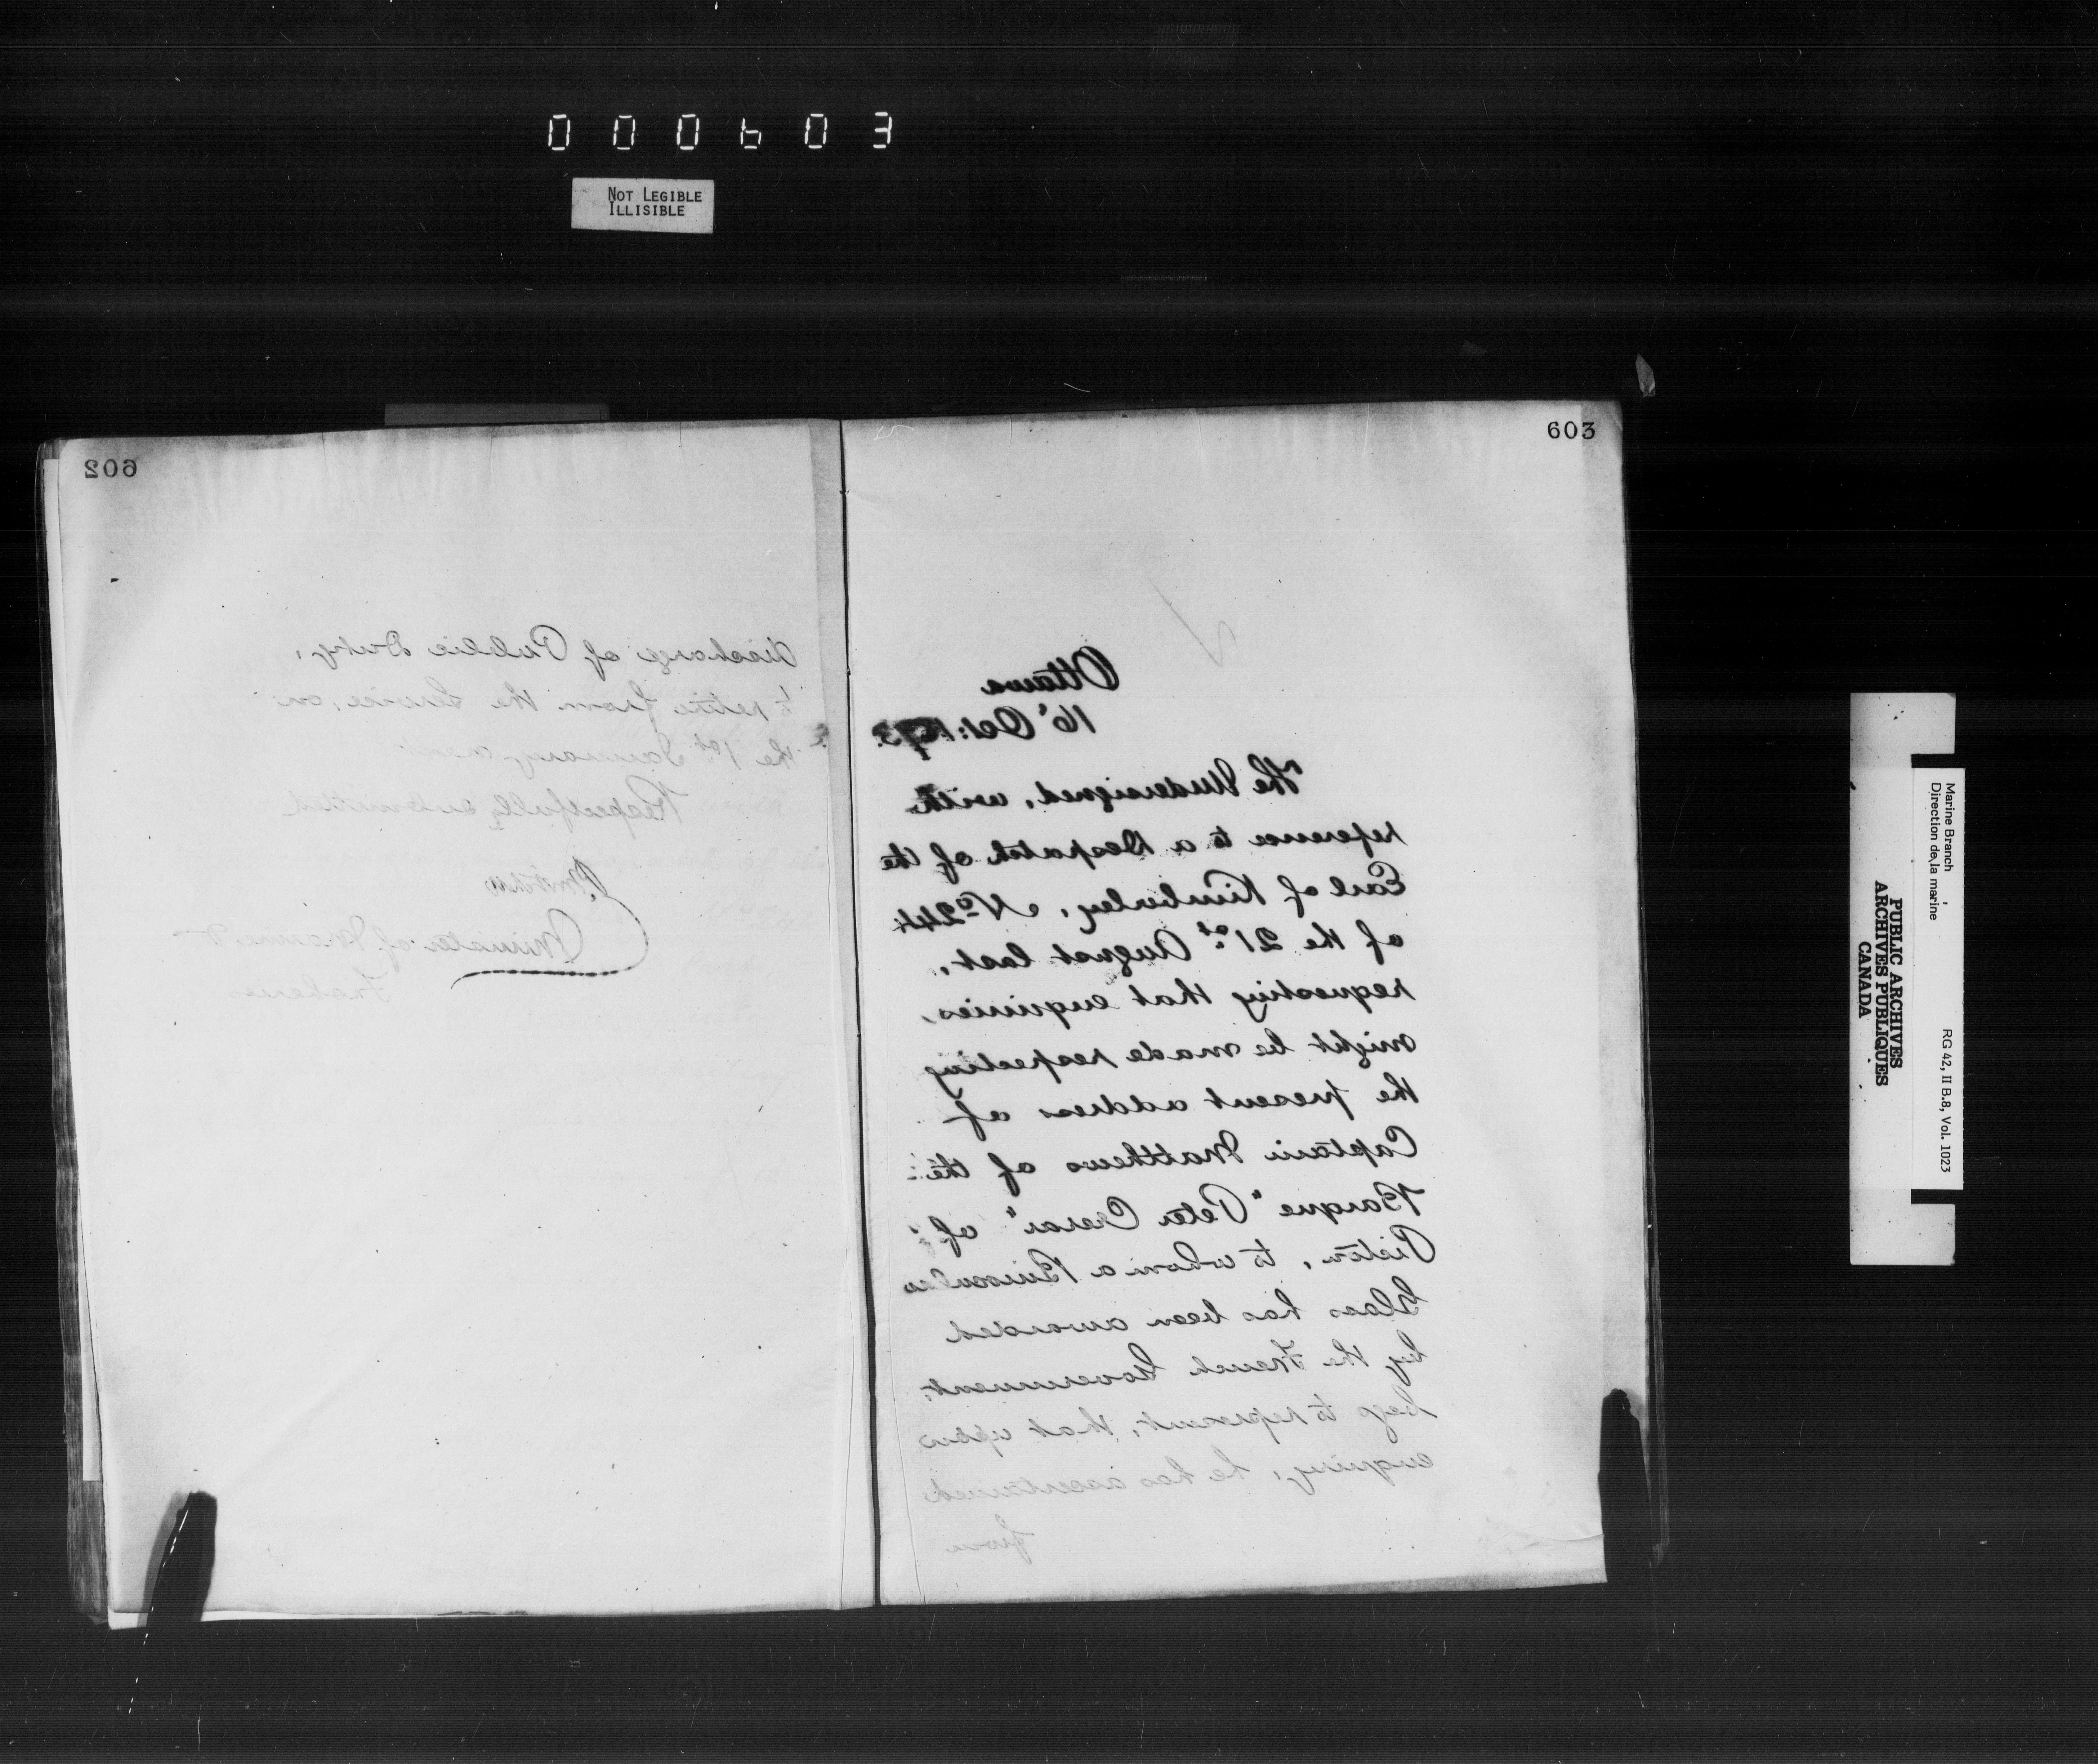 000603
NOT LEGIBLE
ILLISIBLE
602
discharge of Public Duty,
to retire from the Service, on
the 1st January next
Respectfully submitted
P. Mitchell
Minister of Marine &
Fisheries
603
Ottawa
16' Oct: 1873.
The Undersigned, with
reference to a Despatch of the
Earl of Kimberley, No 244
of the 21st August last,
requesting that enquiries,
might be made respecting
the present address of
Captain Matthews of the
Barque "Peter Crerar" of
Pictou, to whom a Binocular
Glass has been awarded
by the French Government,
begs to represent, that upon
enquiry, he has ascertained
from
Marine Branch
Direction de la marine
RG 42, II B.8, Vol. 1023
PUBLIC ARCHIVES
ARCHIVES PUBLIQUES
CANADA